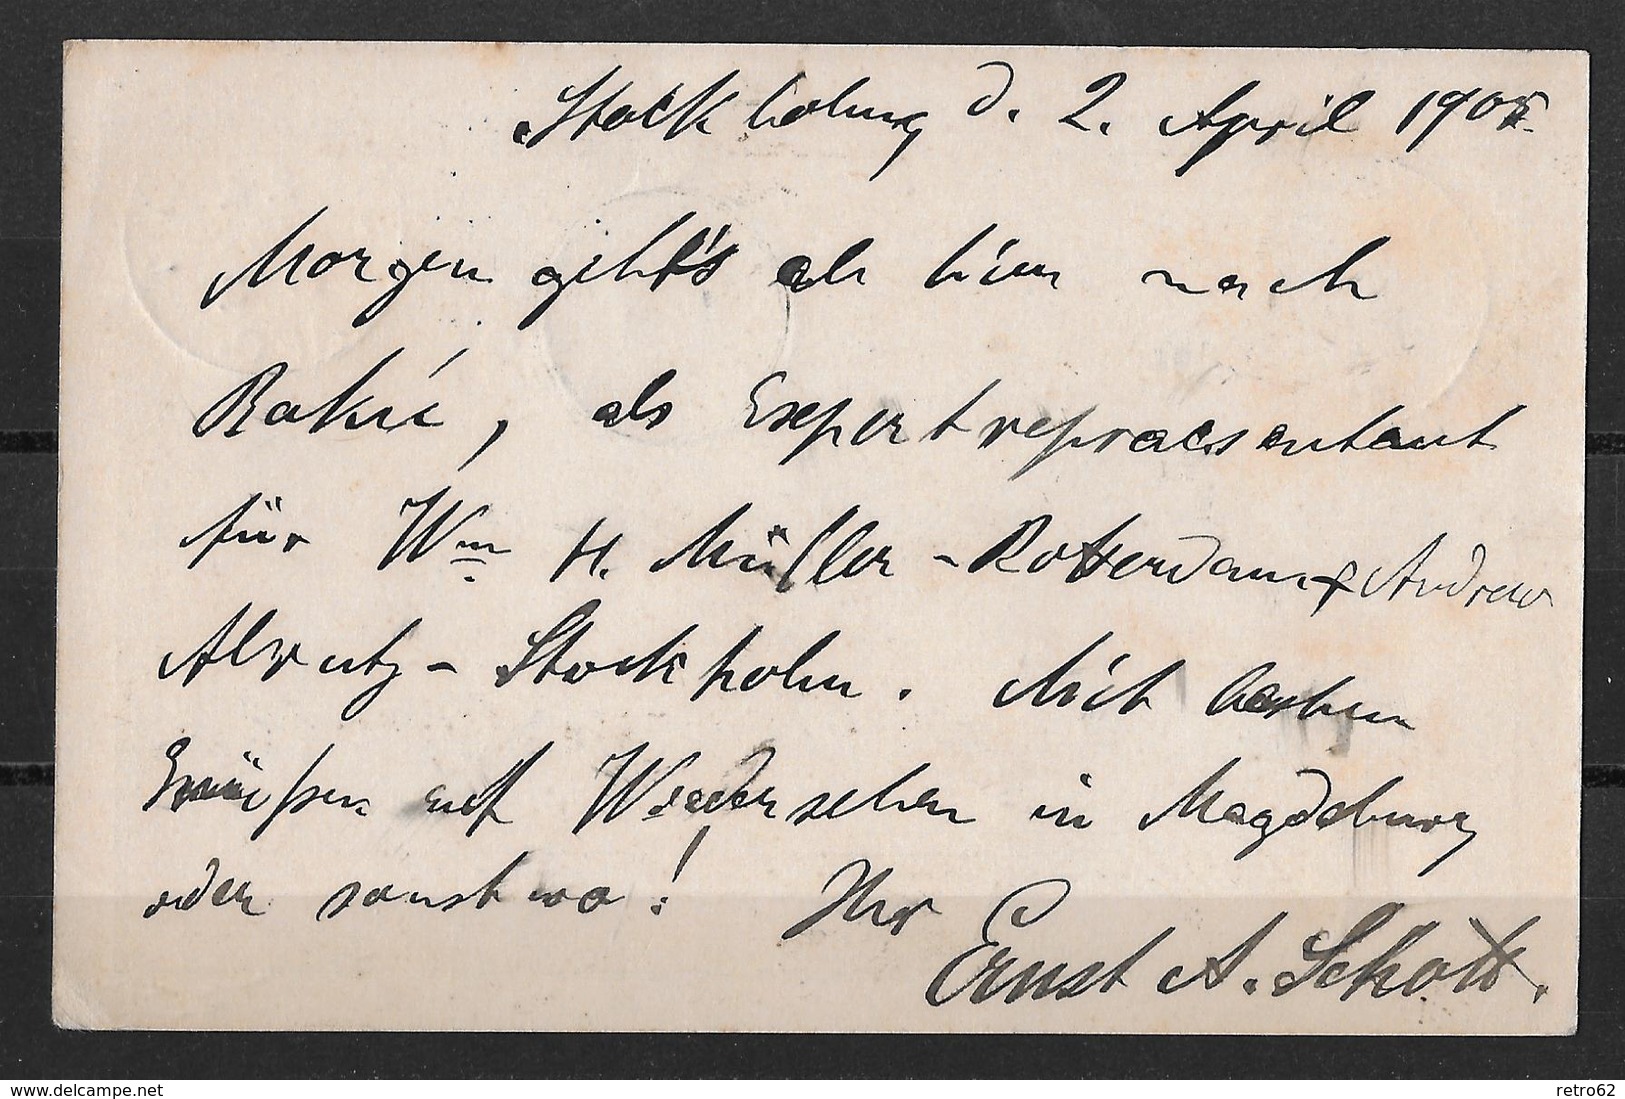 Stockholm, d. 2. April 1908.
Morgen geht's ab hier nach
Baku, als Expertrepraesentant
für Wm H. Müller - Rotterdam & Andrew
Alrutz - Stockholm. Mit besten
Grüßen auf Wiedersehen in Magdeburg
oder sonstwo! Ihr
Ernst A. Schott.
www.delcampe.net
retro62